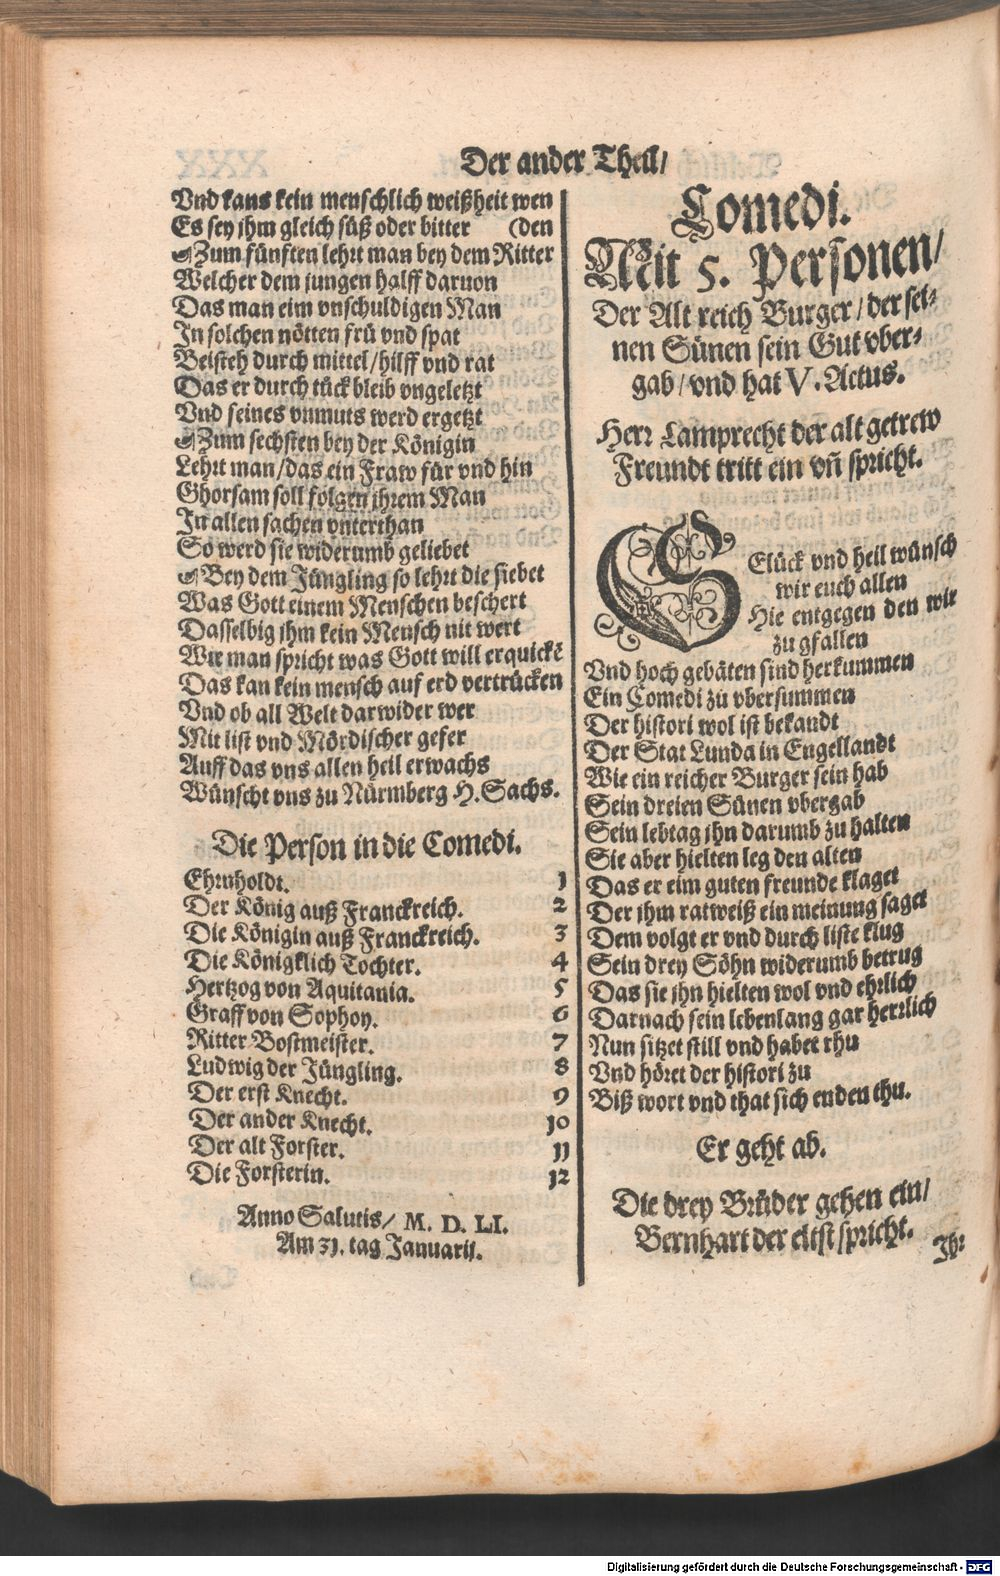 Der ander Theil/
Vnd kans kein menschlich weißheit wen
Es sey jhm gleich süß oder bitter (den
Zum fünften lehrt man bey dem Ritter
Welcher dem jungen halff daruon
Das man eim vnschuldigen Man
In solchen nötten frü vnd spat
Beisteh durch mittel/hilff vnd rat
Das er durch tück bleib vngeletzt
Vnd seines vnmuts werd ergetzt
Zum sechsten bey der Königin
Lehrt man/das ein Fraw für vnd hin
Ghorsam soll folgen jhrem Man
In allen sachen vnterthan
So werd sie widerumb geliebet
Bey dem Jüngling so lehrt die siebet
Was Gott einem Menschen beschert
Dasselbig jhm kein Mensch nit wert
Wie man spricht was Gott will erquickē
Das kan kein mensch auf erd vertrücken
Vnd ob all Welt darwider wer
Mit list vnd Mördischer gefer
Auff das vns allen heil erwachs
Wünscht vns zu Nürmberg H. Sachs.
Die Person in die Comedi.
Ehrnholdt. 1
Der König auß Franckreich. 2
Die Königin auß Franckreich. 3
Die Königklich Tochter. 4
Hertzog von Aquitania. 5
Graff von Sophoy. 6
Ritter Bostmeister. 7
Ludwig der Jüngling. 8
Der erst Knecht. 9
Der ander Knecht. 10
Der alt Forster. 11
Die Forsterin. 12
Anno Salutis/ M. D. LI.
Am 31. tag Januarij.
Comedi.
Mit 5. Personen/
Der Alt reich Burger/der sei-
nen Sünen sein Gut vber-
gab/vnd hat V. Actus.
Herr Lamprecht der alt getrew
Freundt tritt ein vñ spricht.
GElück vnd heil wünsch
wir euch allen
Hie entgegen den wir
zu gfallen
Vnd hoch gebäten sind herkummen
Ein Comedi zu vbersummen
Der histori wol ist bekandt
Der Stat Lunda in Engellandt
Wie ein reicher Burger sein hab
Sein dreien Sünen vbergab
Sein lebtag jhn darumb zu halten
Sie aber hielten leg den alten
Das er eim guten freunde klaget
Der jhm ratweiß ein meinung saget
Dem volgt er vnd durch liste klug
Sein drey Söhn widerumb betrug
Das sie jhn hielten wol vnd ehrlich
Darnach sein lebenlang gar herrlich
Nun sitzet still vnd habet rhu
Vnd höret der histori zu
Biß wort vnd that sich enden thu.
Er geht ab.
Die drey Brüder gehen ein/
Bernhart der eltst spricht.
Jhr
Digitalisierung gefördert durch die Deutsche Forschungsgemeinschaft - DFG